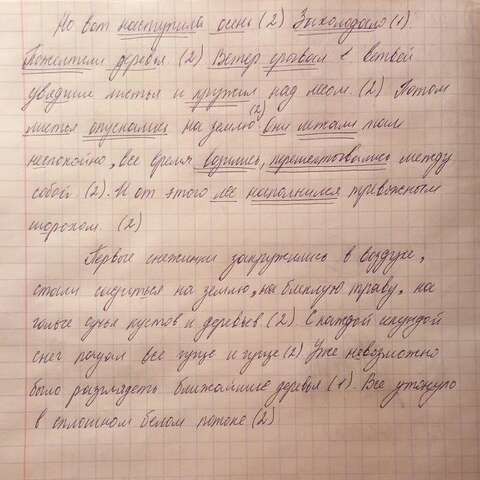 Но вот наступила осень (2) Захолодало (1).
Пожелтели деревья. (2) Ветер срывал с ветвей
увядшие листья и кружил над лесом. (2) Потом
листья опускались на землю. (2) Они лежали там
неспокойно, все время возились, перешептывались между
собой (2). И от этого лес наполнился тревожным
шорохом. (2)
Первые снежинки закружились в воздухе,
стали садиться на землю, на блеклую траву, на
голые сучья кустов и деревьев (2) С каждой секундой
снег падал все гуще и гуще (2) Уже невозможно
было разглядеть ближайшие деревья (1). Все утонуло
в сплошном белом потоке (2)